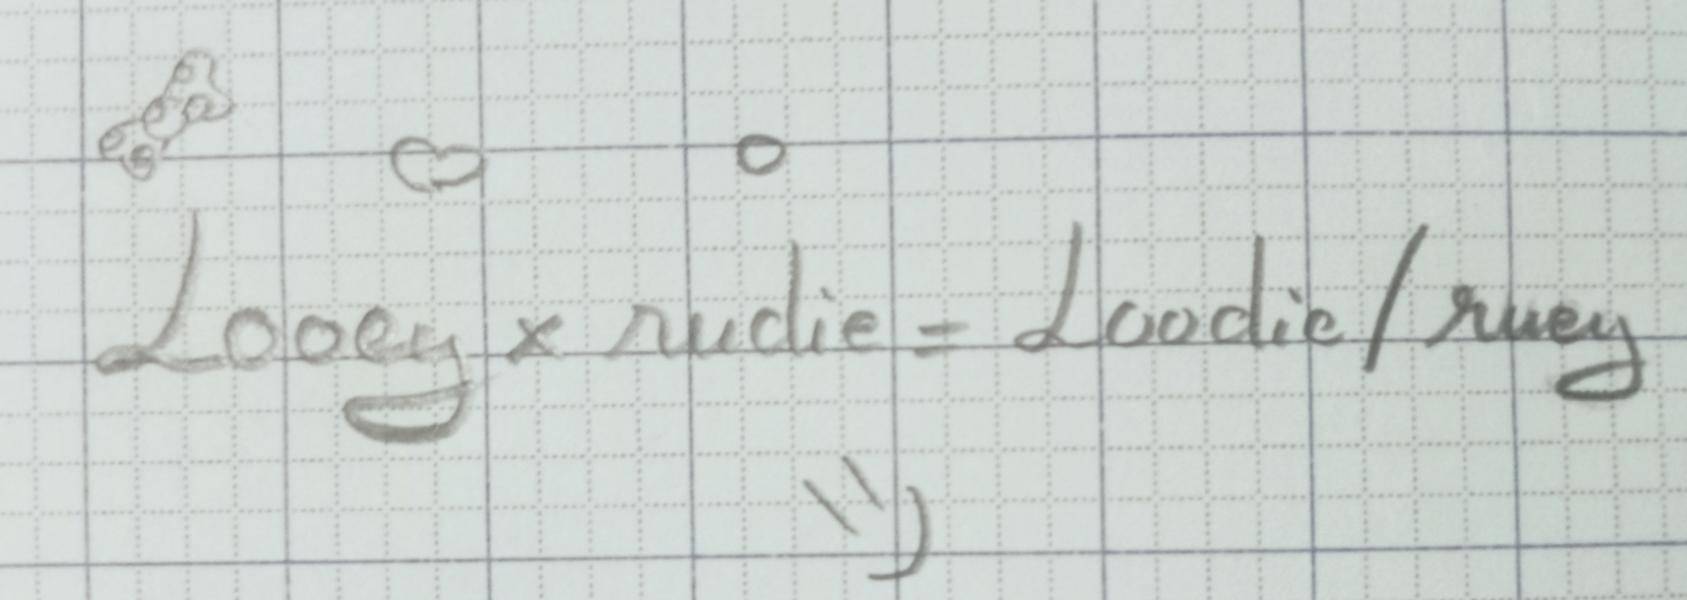 Looey x rudie = Loodie/ruey